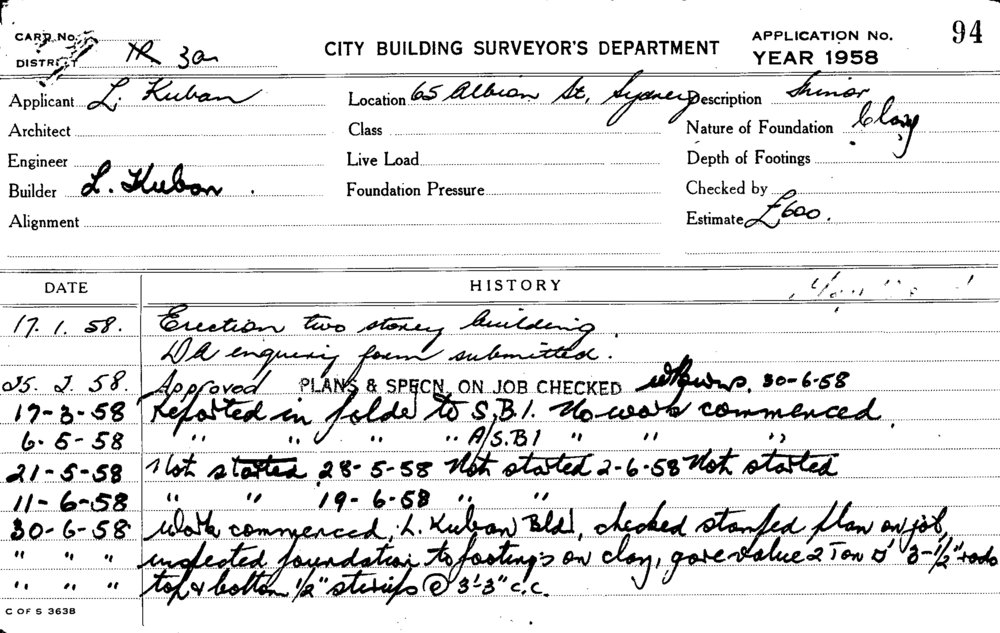 CARD No. 94
DISTRICT TR 3a
CITY BUILDING SURVEYOR'S DEPARTMENT
APPLICATION No.
YEAR 1958
Applicant L. Kuban
Location 65 Albion St, Sydney
Description Minor
Architect
Class
Nature of Foundation Clay
Engineer
Live Load
Depth of Footings
Builder L. Kuban.
Foundation Pressure
Checked by
Alignment
Estimate £600.
DATE HISTORY
17. 1. 58. Erection two storey building.
DA enquiry form submitted.
25. 2. 58. Approved PLANS & SPECN. ON JOB CHECKED 30-6-58
17-3-58 Reported in folder to S.B.I. No work commenced.
6. 5-58 " " " " A/S.B1 " " "
21-5-58 Not started 28-5-58 Not started 2-6-58 Not started
11-6-58 " " 19-6-58 " "
30-6-58 Work commenced, L. Kuban Bld, checked stamped plan on job,
" " " inspected foundation to footings on clay, gave value 2 Ton 3-1/2" rods
" " " top & bottom 1/2" stirrips @ 3'3" c.c.
C OF S 3638